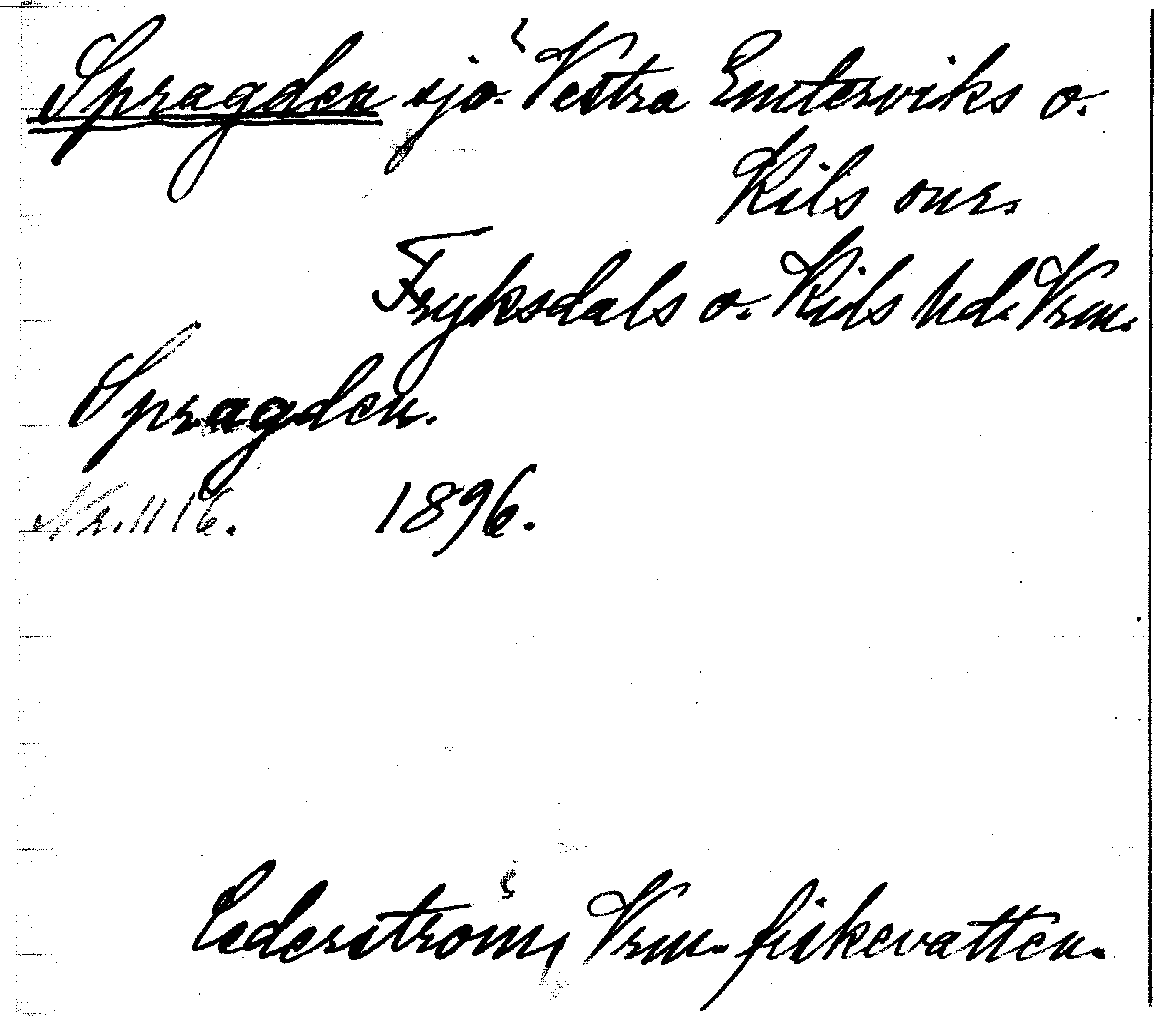 Spragden sjö. Vestra Emterviks o.
Kils snr.
Fryksdals o. Kils hd. Vrm.
Spragden.
Nr. 1116. 1896.
Cederström, Vrm. fiskevatten.